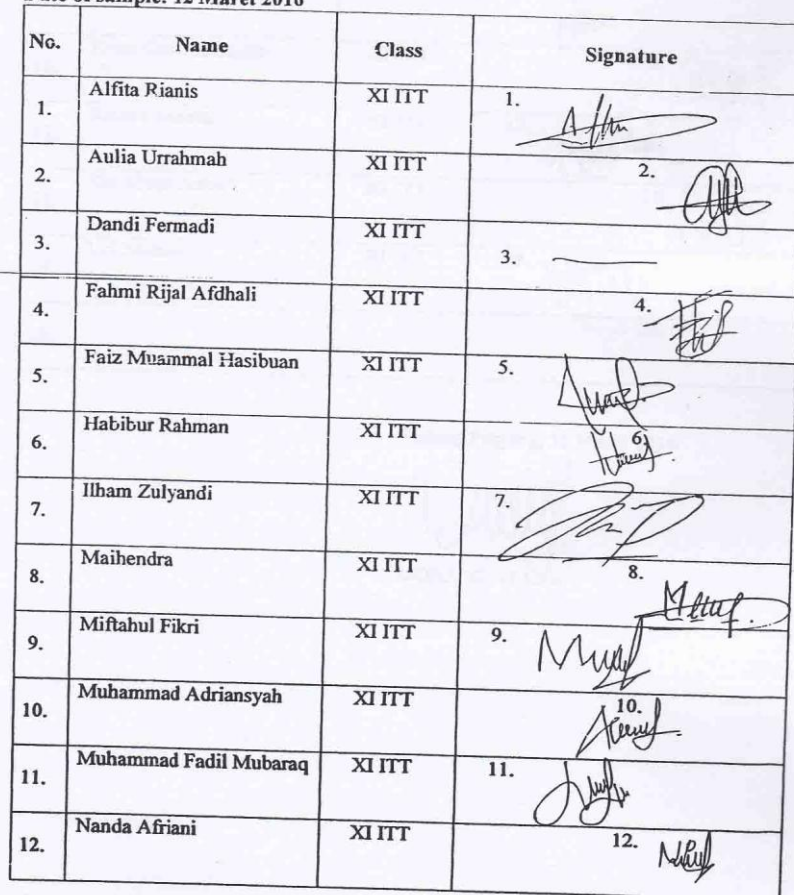 Date of sample: 12 Maret 2016
No. Name Class Signature
1. Alfita Rianis XI ITT 1.
2. Aulia Urrahmah XI ITT 2.
3. Dandi Fermadi XI ITT 3.
4. Fahmi Rijal Afdhali XI ITT 4.
5. Faiz Muammal Hasibuan XI ITT 5.
6. Habibur Rahman XI ITT 6.
7. Ilham Zulyandi XI ITT 7.
8. Maihendra XI ITT 8.
9. Miftahul Fikri XI ITT 9.
10. Muhammad Adriansyah XI ITT 10.
11. Muhammad Fadil Mubaraq XI ITT 11.
12. Nanda Afriani XI ITT 12.